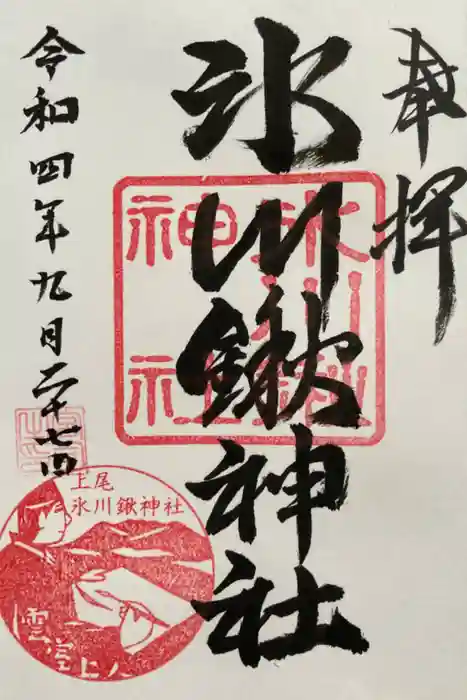 奉拝
氷川鍬神社
令和四年九月二十七日
氷川鍬神社
上尾
氷川鍬神社
雲室上人